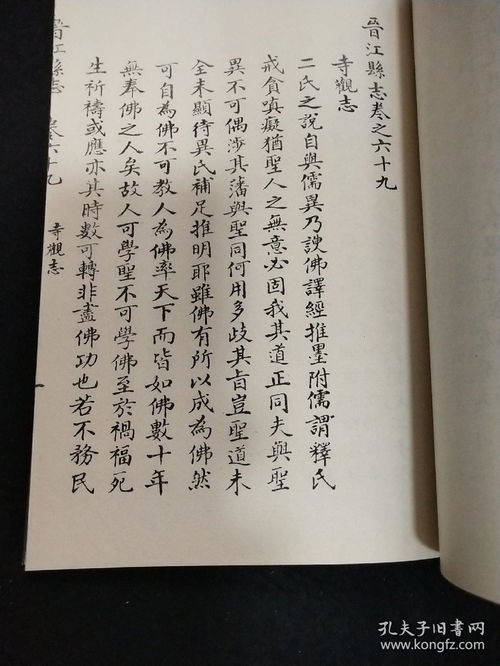 晉江縣志卷之六十九
寺觀志
二氏之說自與儒異乃諛佛譯經推墨附儒謂釋氏
戒貪嗔癡猶聖人之無意必固我其道正同夫與聖
異不可偶涉其藩與聖同何用多歧其旨豈聖道未
全未顯待異氏補足推明耶雖佛有所以成為佛然
可自為佛不可教人為佛率天下而皆如佛數十年
無奉佛之人矣故人可學聖不可學佛至於禍福死
生祈禱或應亦其時數可轉非盡佛功也若不務民
晉江縣志 卷六十九 寺觀志
孔夫子旧书网
www.kongfz.com